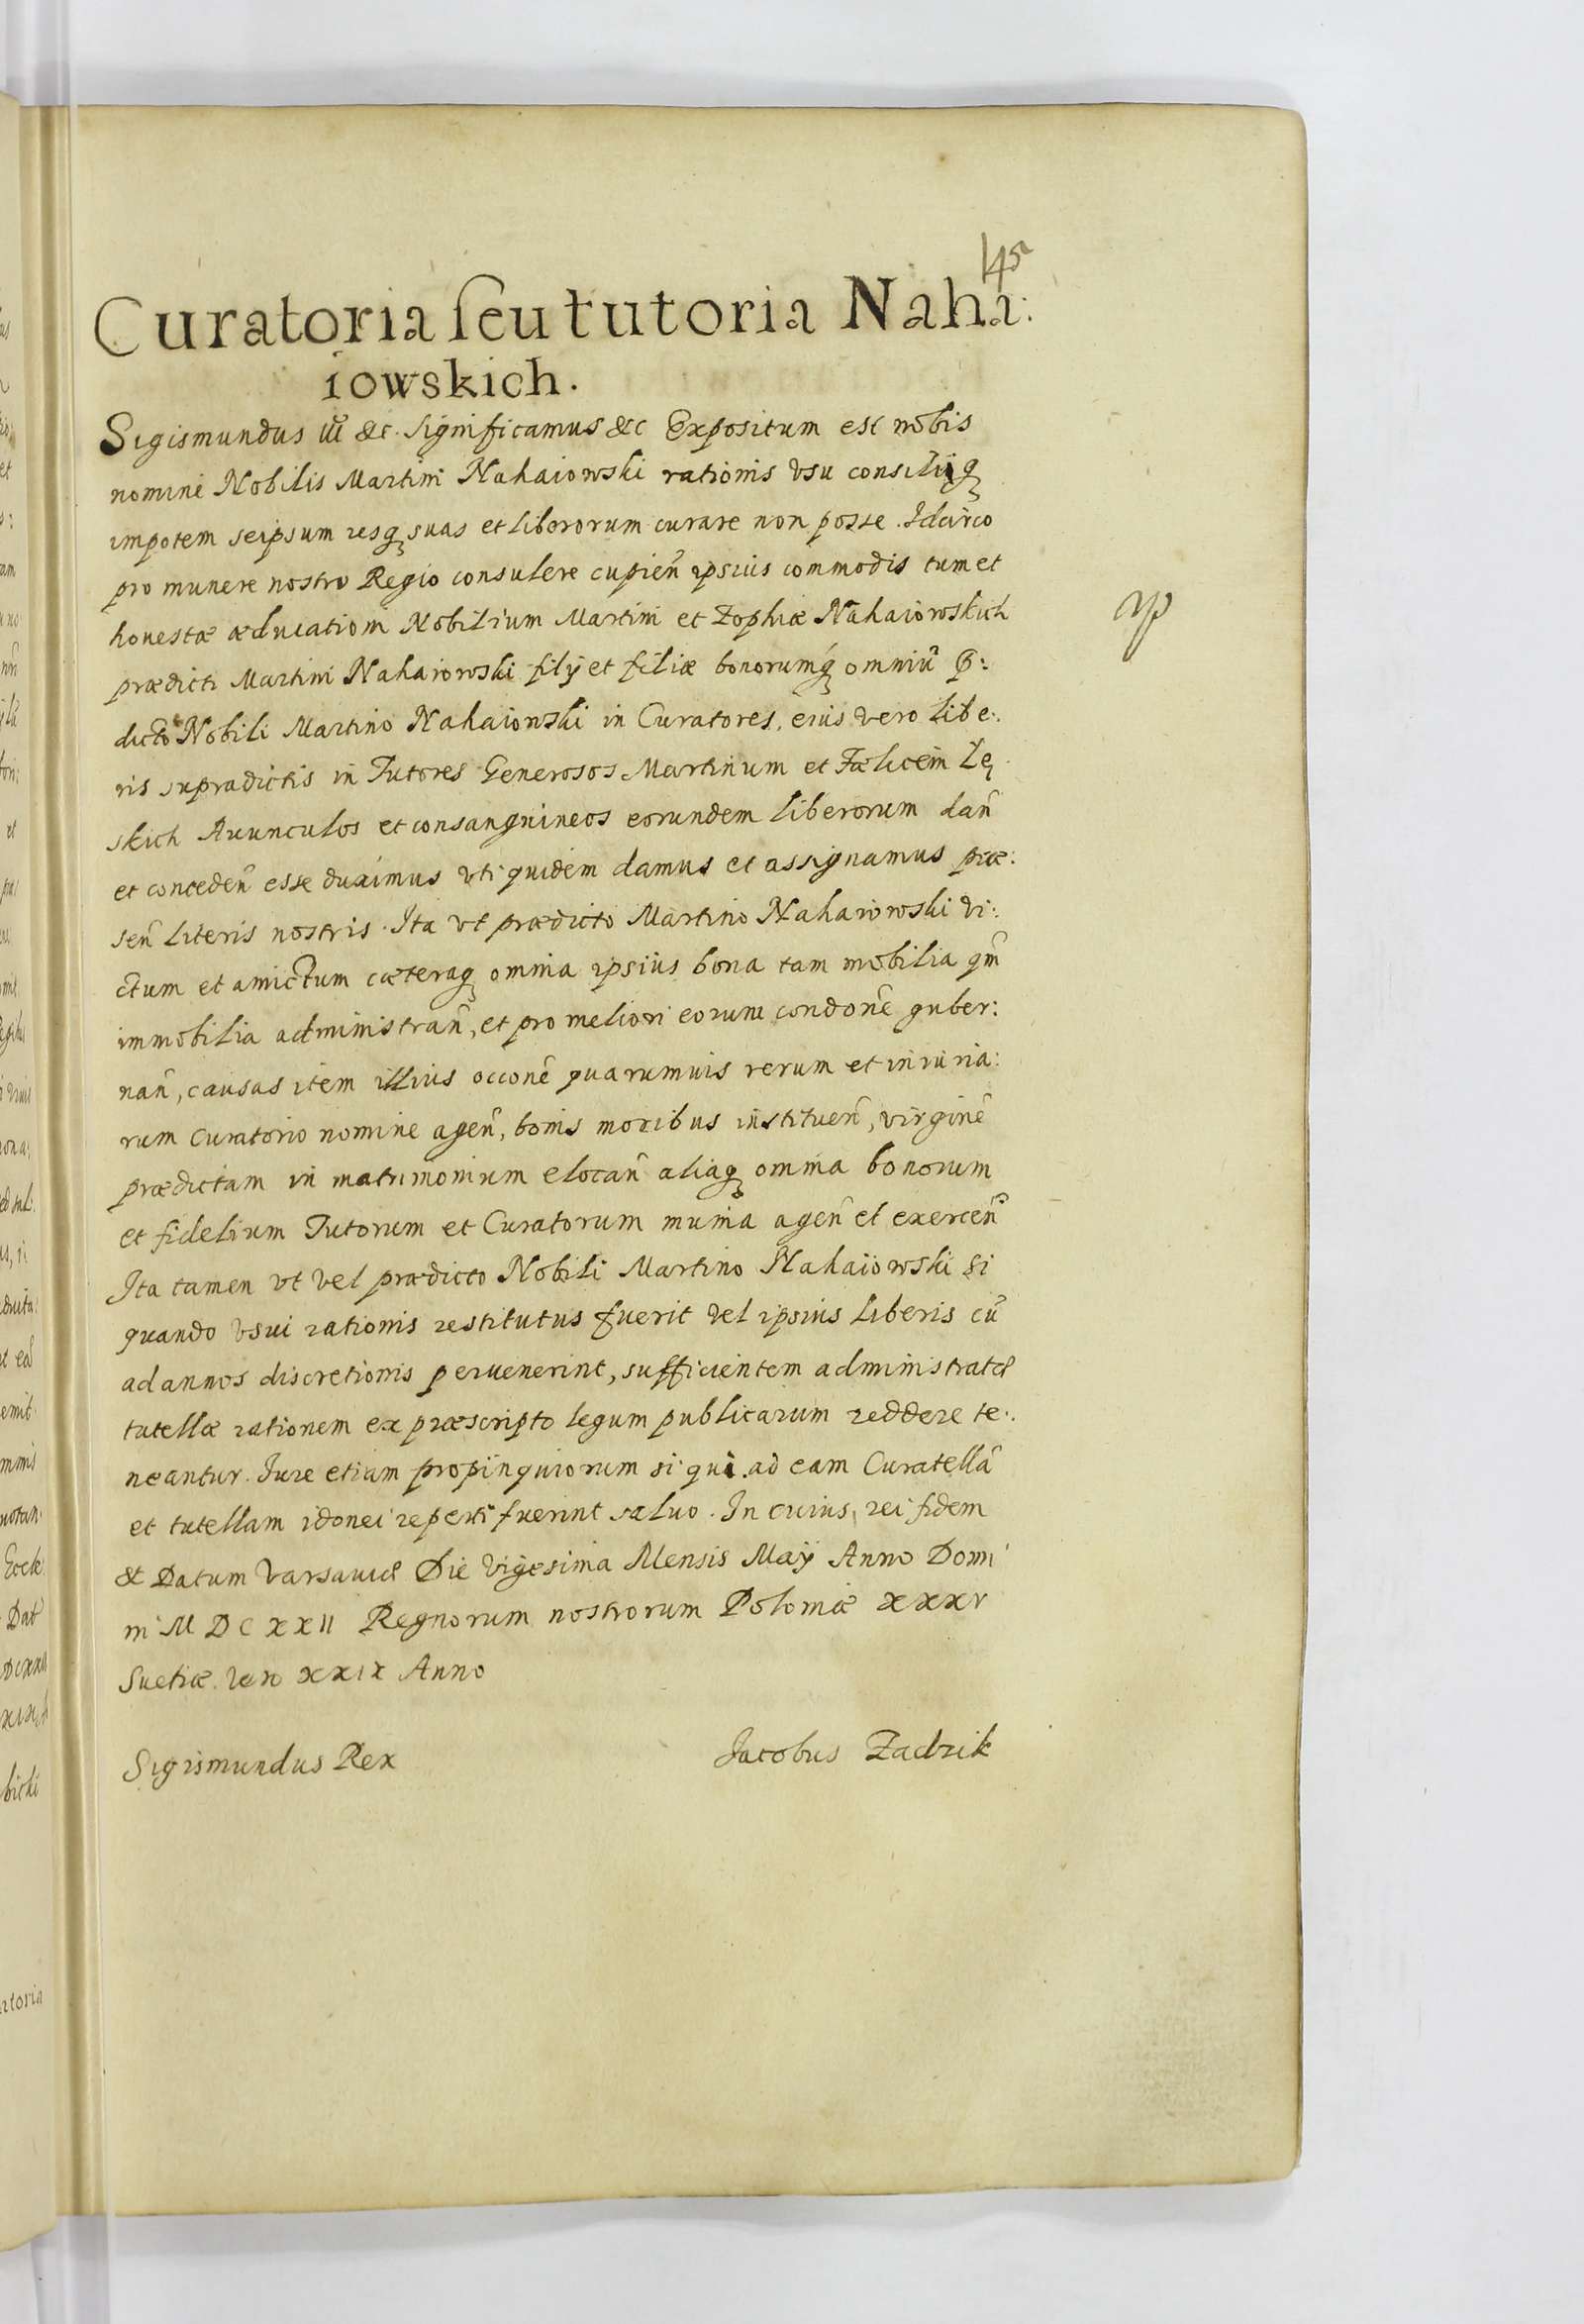 145
Curatoria seu tutoria Naha:
iowskich.
Sigismundus III &c. Significamus &c Expositum est nobis
nomine Nobilis Martini Nahaiowski rationis vsu consiliiq̃
impotem seipsum resq̃ suas et liberorum curare non posse. Idcirco
pro munere nostro Regio consulere cupieñ ipsius commodis tum et
honestæ æducationi Nobilium Martini et Zophiæ Nahaiowskich
prædicti Martini Nahaiowski filij et filiæ bonorumq̃ omniũ p:
dicto Nobili Martino Nahaiowski in Curatores, eius vero libe:
ris supradictis in Tutores Generosos Martinum et Fælicem Lę
skich Auunculos et consanguineos eorundem liberorum dañ
et concedeñ esse duximus vti quidem damus et assignamus præ:
señ literis nostris. Ita vt prædicto Martino Nahaiowski vi:
ctum et amictum cæteraq̃ omnia ipsius bona tam mobilia qm̃
immobilia administrañ, et pro meliori eorum condonẽ guber:
nañ, causas item illius occonẽ quarumuis rerum et iniuria:
rum Curatorio nomine ageñ, bonis moribus instítueñ, virginẽ
prædictam in matrimonium elocañ aliaq̃ omnia bonorum
et fidelium Tutorum et Curatorum munia ageñ et exerceñ
Ita tamen vt vel prædicto Nobili Martino Nahaiowski si
quando vsui rationis restitutus fuerit vel ipsius liberis cũ
ad annos discretionis peruenerint, sufficientem administratæ
tutellæ rationem ex præscripto legum publicarum reddere te:
neantur. Iure etiam propinquiorum si qui ad eam Curatellã
et tutellam idonei reperti fuerint saluo. In cuius rei fidem
&c Datum Varsauiæ Die Vigesima Mensis Maij Anno Domi
ni M DC XXII Regnorum nostrorum Poloniæ XXXV
Suetiæ vero XXIX Anno
Sigismundus Rex Jacobus Zadzik